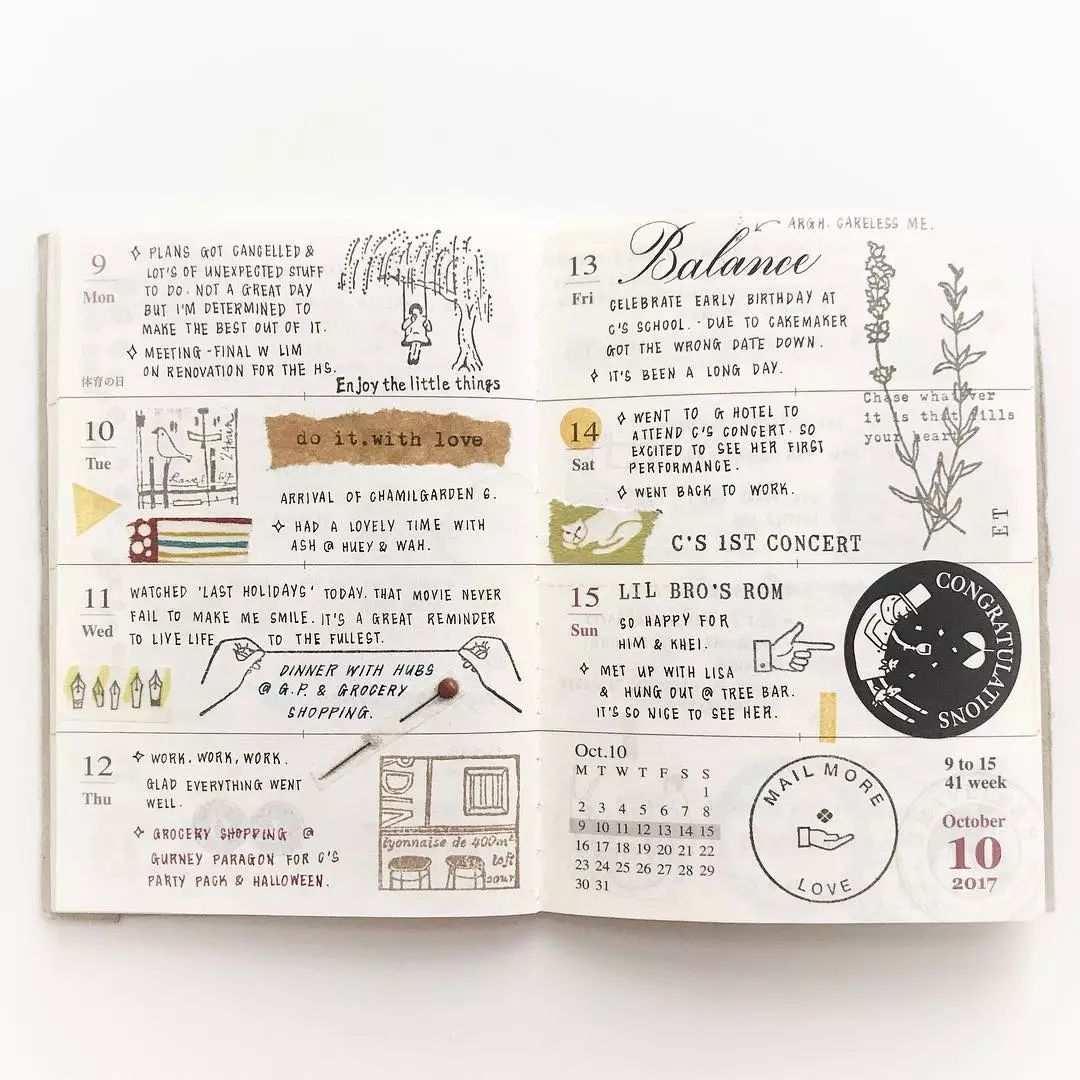 9
Mon
体育の日
PLANS GOT CANCELLED &
LOT'S OF UNEXPECTED STUFF
TO DO. NOT A GREAT DAY
BUT I'M DETERMINED TO
MAKE THE BEST OUT OF IT.
MEETING - FINAL W LIM
ON RENOVATION FOR THE HS.
Enjoy the little things
10
Tue
do it.with love
ARRIVAL OF CHAMILGARDEN 6.
HAD A LOVELY TIME WITH
ASH @ HUEY & WAH.
11
Wed
WATCHED 'LAST HOLIDAYS' TODAY. THAT MOVIE NEVER
FAIL TO MAKE ME SMILE. IT'S A GREAT REMINDER
TO LIVE LIFE TO THE FULLEST.
DINNER WITH HUBS
@ G.P. & GROCERY
SHOPPING.
12
Thu
WORK. WORK, WORK.
GLAD EVERYTHING WENT
WELL.
GROCERY SHOPPING @
GURNEY PARAGON FOR C'S
PARTY PACK & HALLOWEEN.
lyonnaise de 400m²
loft
13
Fri
Balance
ARGH. CARELESS ME.
CELEBRATE EARLY BIRTHDAY AT
C'S SCHOOL. DUE TO CAKEMAKER
GOT THE WRONG DATE DOWN.
IT'S BEEN A LONG DAY.
Chase whatever
it is that fills
your heart
14
Sat
WENT TO G HOTEL TO
ATTEND C'S CONCERT. SO
EXCITED TO SEE HER FIRST
PERFORMANCE.
WENT BACK TO WORK.
C'S 1ST CONCERT
ET
15
Sun
LIL BRO'S ROM
SO HAPPY FOR
HIM & KHEI.
MET UP WITH LISA
& HUNG OUT @ TREE BAR.
IT'S SO NICE TO SEE HER.
CONGRATULATIONS
Oct.10
M T W T F S S
1
2 3 4 5 6 7 8
9 10 11 12 13 14 15
16 17 18 19 20 21 22
23 24 25 26 27 28 29
30 31
MAIL MORE
LOVE
9 to 15
41 week
October
10
2017